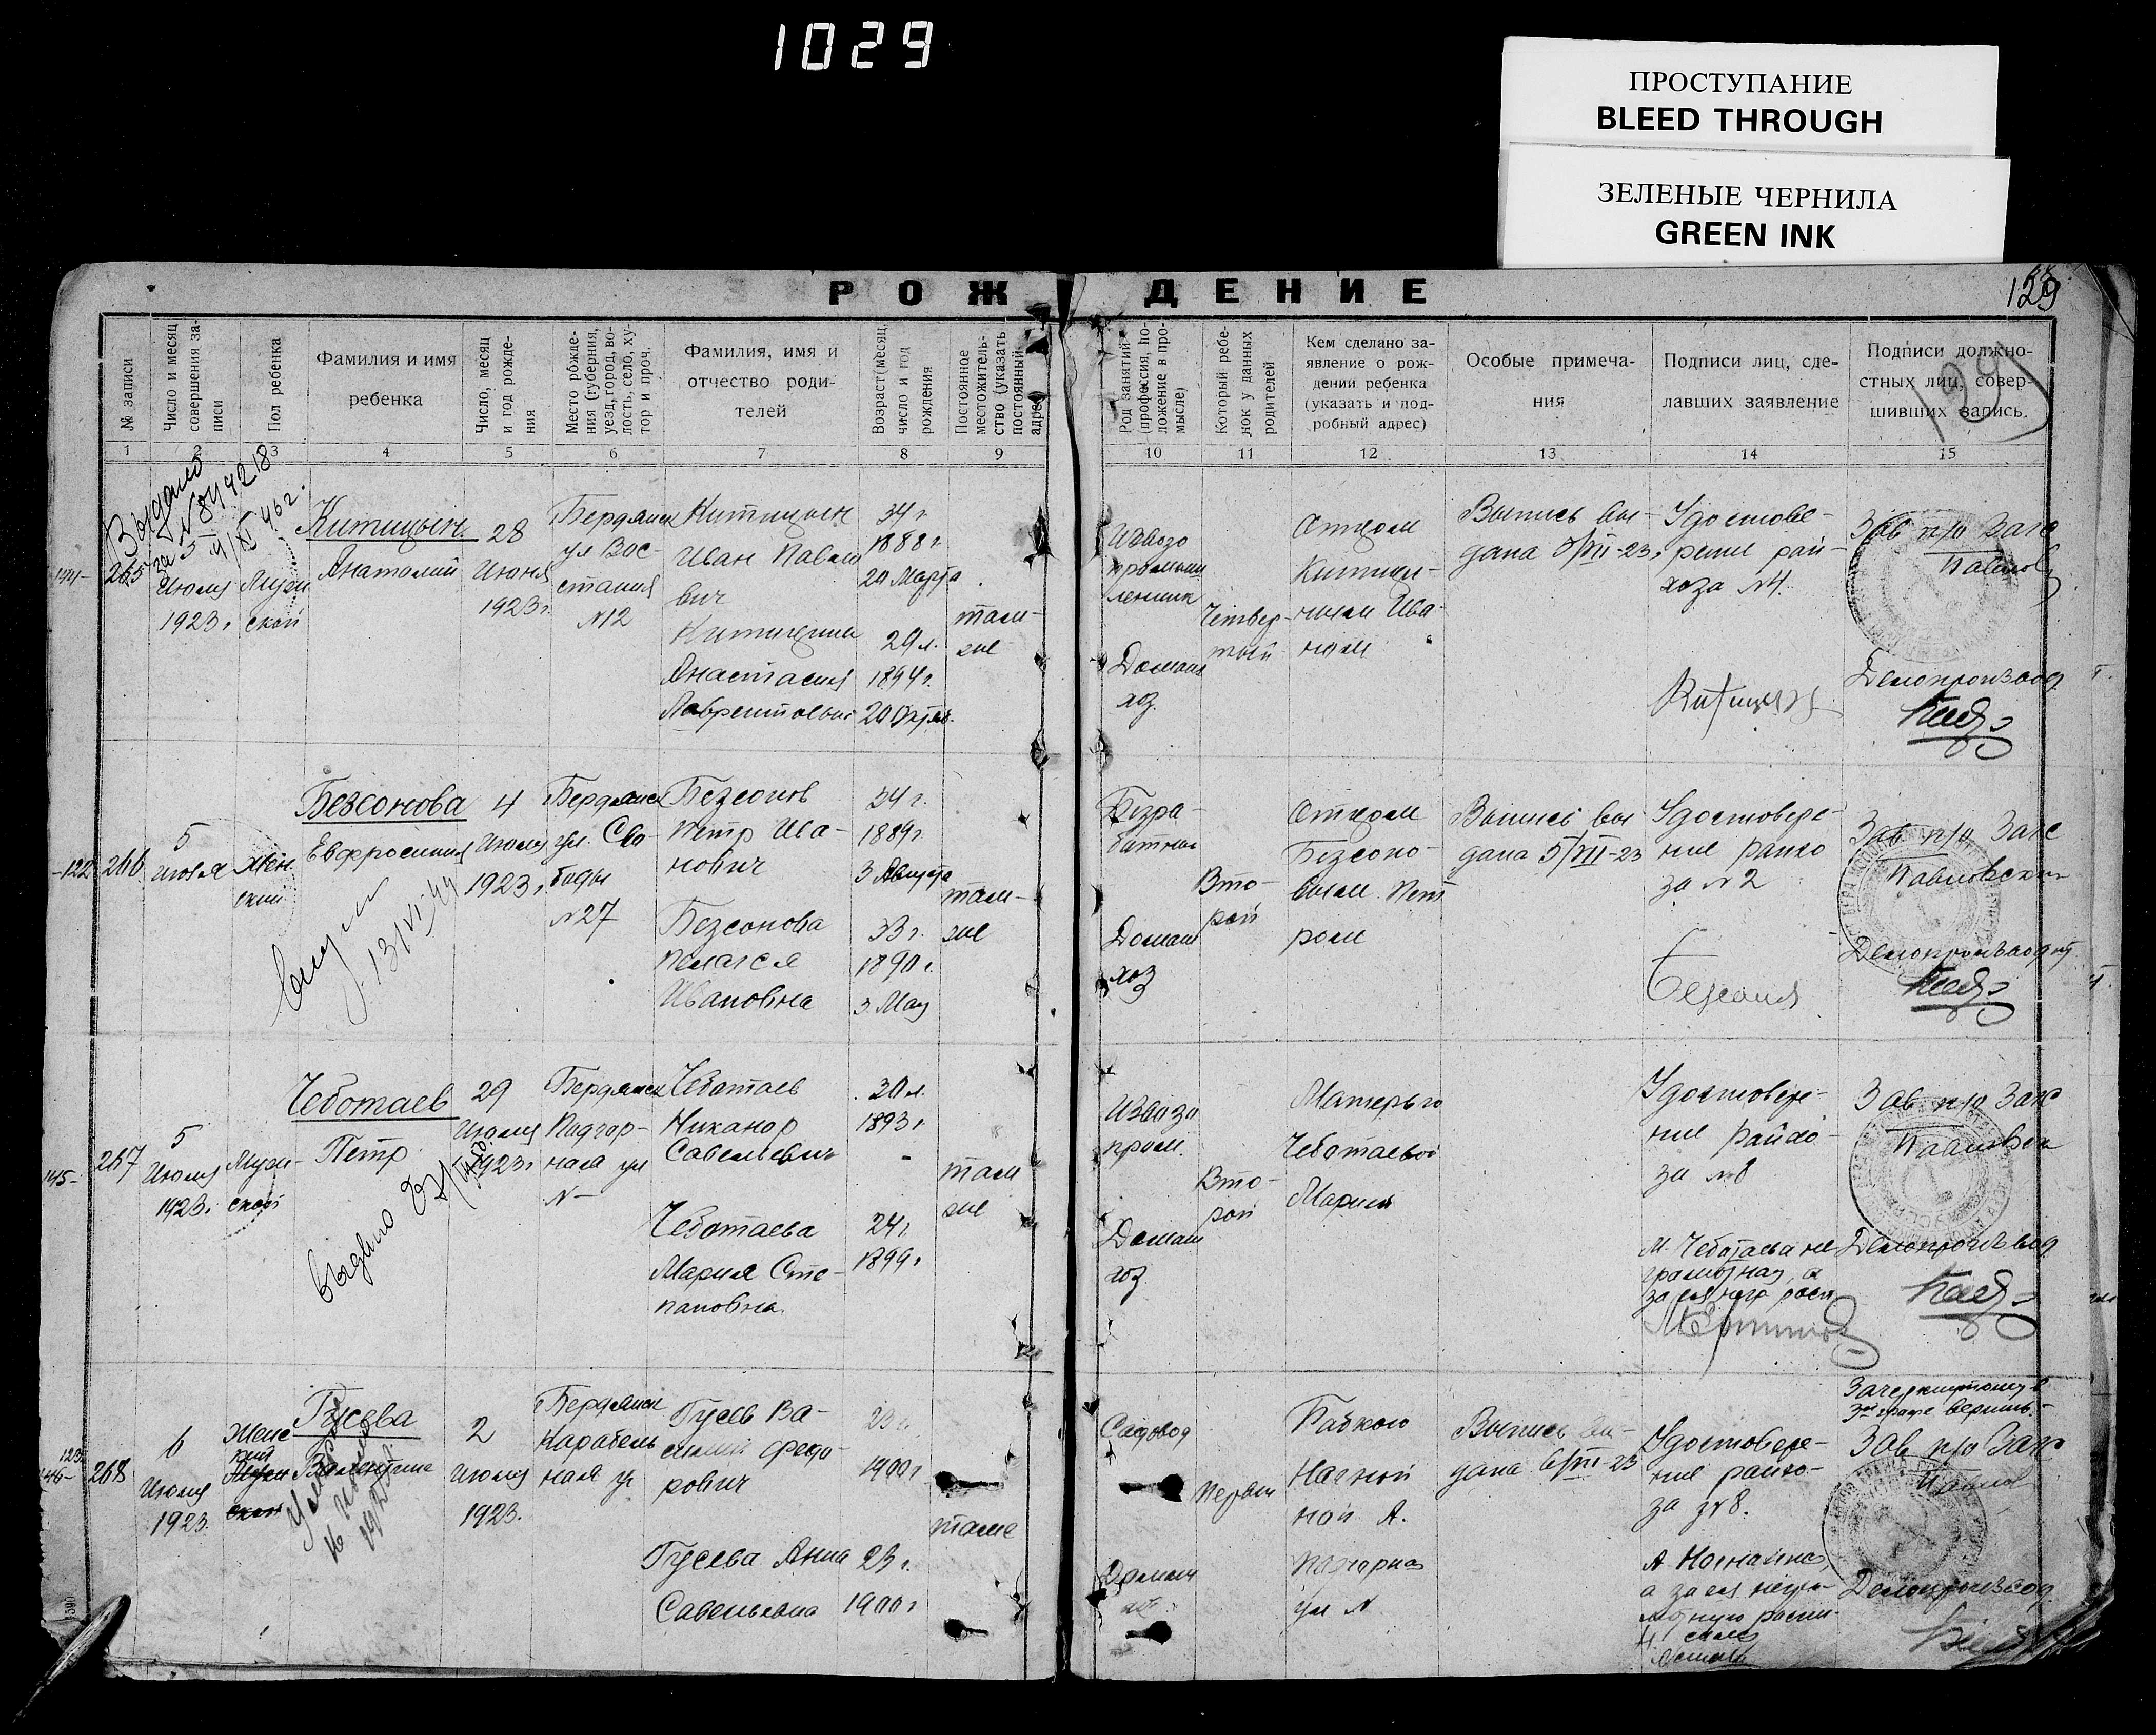 1029
ПРОСТУПАНИЕ
BLEED THROUGH
ЗЕЛЕНЫЕ ЧЕРНИЛА
GREEN INK
РОЖДЕНИЕ
129
№ записи
Число и месяц совершения за-
писи
Пол ребенка
Фамилия и имя
ребенка
Число, месяц
и год рожде-
ния
Место рожде-
ния (губерния,
уезд, город, во-
лость, село, ху-
тор и проч.
Фамилия, имя и
отчество роди-
телей
Возраст (месяц,
число и год
рождения
Постоянное
местожитель-
ство (указать
постоянный
адрес
Род занятий
(профессия, по-
ложение в про-
мысле)
Который ребе-
нок у данных
родителей
Кем сделано за-
явление о рож-
дении ребенка
(указать и под-
робный адрес)
Особые примеча-
ния
Подписи лиц, сде-
лавших заявление
Подписи должно-
стных лиц, совер-
шивших запись.
129
1 2 3 4 5 6 7 8 9 10 11 12 13 14 15
Выдано
144-
265
5
Июля
1923 г
Муж
ской
Китицын
Анатолий
28
Июня
1923 г.
Бердянск
ул Вос-
стания
№12
Китицын
Иван Павло
вич
Китицина
Анастасия
34 г
1888 г
20 Марта
29 л.
1894 г.
20 Октяб.
там-
же
Извозо
промыш
ленник
Домаш
хоз.
Четвер-
тый
Отцом
Китици-
ным Ива-
ном
Выпись вы-
дана 5/VII-23 г
Удостове-
рение рай-
хоза №4.
Зав п/о Загс
Делопроизвод
-122
266
5
июля
Жен
ский
Безсонова
Евфросиния
13/VI 49
4
Июля
1923 г
Бердянск
ул. Сво-
боды
№27
Безсонов
Петр Ива-
нович
Безсонова
Пелагея
Ивановна
34 г.
1889 г.
3 Августа
33 г.
1890 г.
3 Мая
там-
же
Безра-
ботный
Домаш
хоз
Вто-
рой
Отцом
Безсоно-
вым Пет
ром
Выпись вы
дана 5/VII-23
Удостовере-
ние райхо
за №2
Зав п/о Загс
Павловский
Делопроизводит.
145-
267
5
Июля
1923 г
Муж-
ской
Чеботаев
Петр
Выдано
29
Июня
1923 г
Бердянск
Нагор-
ная ул
№ -
Чеботаев
Никанор
Савельевич
Чеботаева
Мария Сте-
пановна
30 л.
1893 г
-
24 г
1899 г
там
же
Извозо
пром.
Домаш
хоз.
Вто-
рой
Матерью
Чеботаевой
Марией
Удостовере-
ние райхо-
за №8
М. Чеботаева не
грамотная, а
за нея расп
Зав п/о Загс
Павловск
Делопроизвод
123
146-
268
6
Июля
1923.
Женс
кий
Муж
ской
Гусева
Валентина
Умерла
16 Июля
2
Июля
1923.
Бердянск
Карабель
ная ул
Гусев Ва-
силий Федо-
рович
Гусева Анна
Савельевна
23 г.
1900 г
23 г.
1900 г
тамже
Садовод
Домаш
хоз.
Первый
Бабкою
Нагорная
ул №
Выпись вы-
дана 6/VII-23
Удостовере-
ние райхо-
за №8.
а за ея негра-
мотную распи-
Зачеркнутому в
3й графе верить.
Зав п/о Загс
Делопроизвод